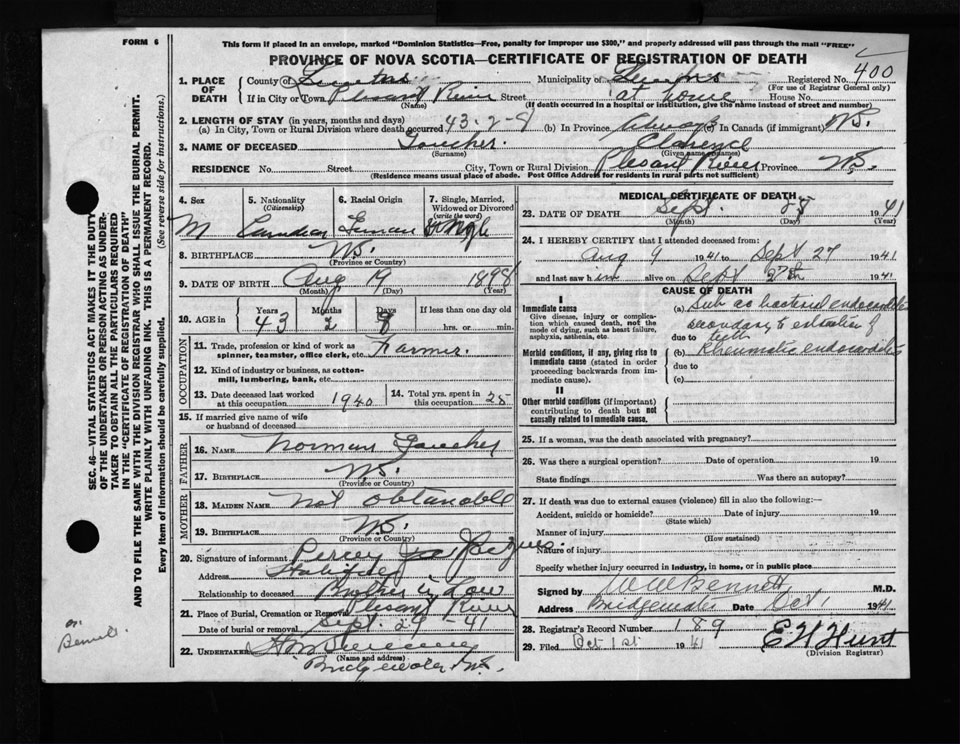 FORM 6
This form if placed in an envelope, marked "Dominion Statistics—Free, penalty for improper use $300," and properly addressed will pass through the mail "FREE"
PROVINCE OF NOVA SCOTIA—CERTIFICATE OF REGISTRATION OF DEATH
1. PLACE OF DEATH
County of
Municipality of
Registered No. 400
(For use of Registrar General only)
If in City or Town Plesant River Street at home House No.
(Name) (If death occurred in a hospital or institution, give the name instead of street and number)
2. LENGTH OF STAY (in years, months and days)
(a) In City, Town or Rural Division where death occurred 43-2-8 (b) In Province Always (c) In Canada (if immigrant) NS.
3. NAME OF DECEASED Clarence
(Surname) (Given name or names)
RESIDENCE No. Street City, Town or Rural Division Plesant River Province NS.
(Residence means usual place of abode. Post Office Address for residents in rural parts not sufficient)
4. Sex M
5. Nationality (Citizenship) Canadian
6. Racial Origin German
7. Single, Married, Widowed or Divorced (write the word) Single
8. BIRTHPLACE NS.
(Province or Country)
9. DATE OF BIRTH Aug 19 1898
(Month) (Day) (Year)
10. AGE in Years 43 Months 2 Days 8 If less than one day old
hrs. or min.
OCCUPATION
11. Trade, profession or kind of work as spinner, teamster, office clerk, etc. Farmer.
12. Kind of industry or business, as cotton-mill, lumbering, bank, etc.
13. Date deceased last worked at this occupation 1940
14. Total yrs. spent in this occupation 25
15. If married give name of wife or husband of deceased
FATHER
16. NAME Norman
17. BIRTHPLACE NS.
(Province or Country)
MOTHER
18. MAIDEN NAME Not Obtanable
19. BIRTHPLACE NS.
(Province or Country)
20. Signature of informant Percey
Address
Relationship to deceased Brother in Law
21. Place of Burial, Cremation or Removal Plesant River
Date of burial or removal Sept. 29 - 41
22. UNDERTAKER
(Name and address)
Bridgewater NS.
MEDICAL CERTIFICATE OF DEATH
23. DATE OF DEATH Sept. 1941
(Month) (Day) (Year)
24. I HEREBY CERTIFY that I attended deceased from:
Aug 9 1941 to Sept 27 1941
and last saw him alive on Sept 27th 1941
CAUSE OF DEATH
I
Immediate cause
Give disease, injury or complication which caused death, not the mode of dying, such as heart failure, asphyxia, asthenia, etc.
(a) Sub ac bacterial endocarditis
secondary to extraction of
due to teeth
Morbid conditions, if any, giving rise to immediate cause (stated in order proceeding backwards from immediate cause).
(b) Rheumatic endocarditis
due to
(c)
II
Other morbid conditions (if important) contributing to death but not causally related to immediate cause.
25. If a woman, was the death associated with pregnancy?
26. Was there a surgical operation? Date of operation 19
State findings Was there an autopsy?
27. If death was due to external causes (violence) fill in also the following:—
Accident, suicide or homicide? Date of injury 19
(State which)
Manner of injury
(How sustained)
Nature of injury
Specify whether injury occurred in industry, in home, or in public place
Signed by Bennett M.D.
Address Bridgewater Date Oct 1 1941
28. Registrar's Record Number 189
29. Filed Oct 1st 1941 E W Hunt
(Division Registrar)
SEC. 46—VITAL STATISTICS ACT MAKES IT THE DUTY
OF THE UNDERTAKER OR PERSON ACTING AS UNDERTAKER TO OBTAIN ALL THE PARTICULARS REQUIRED
IN THE "CERTIFICATE OF REGISTRATION OF DEATH"
AND TO FILE THE SAME WITH THE DIVISION REGISTRAR WHO SHALL ISSUE THE BURIAL PERMIT.
WRITE PLAINLY WITH UNFADING INK. THIS IS A PERMANENT RECORD.
Every item of information should be carefully supplied. (See reverse side for instructions.)